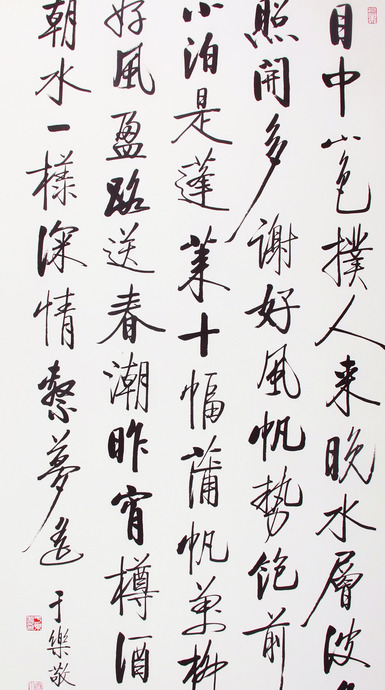 目中山色撲人來晚水層波
照開多謝好風帆勢飽前
小泊是蓬萊十幅蒲帆萬柳
好風盈路送春潮昨宵樽酒
朝水一樣深情繫夢遙
于樂敬